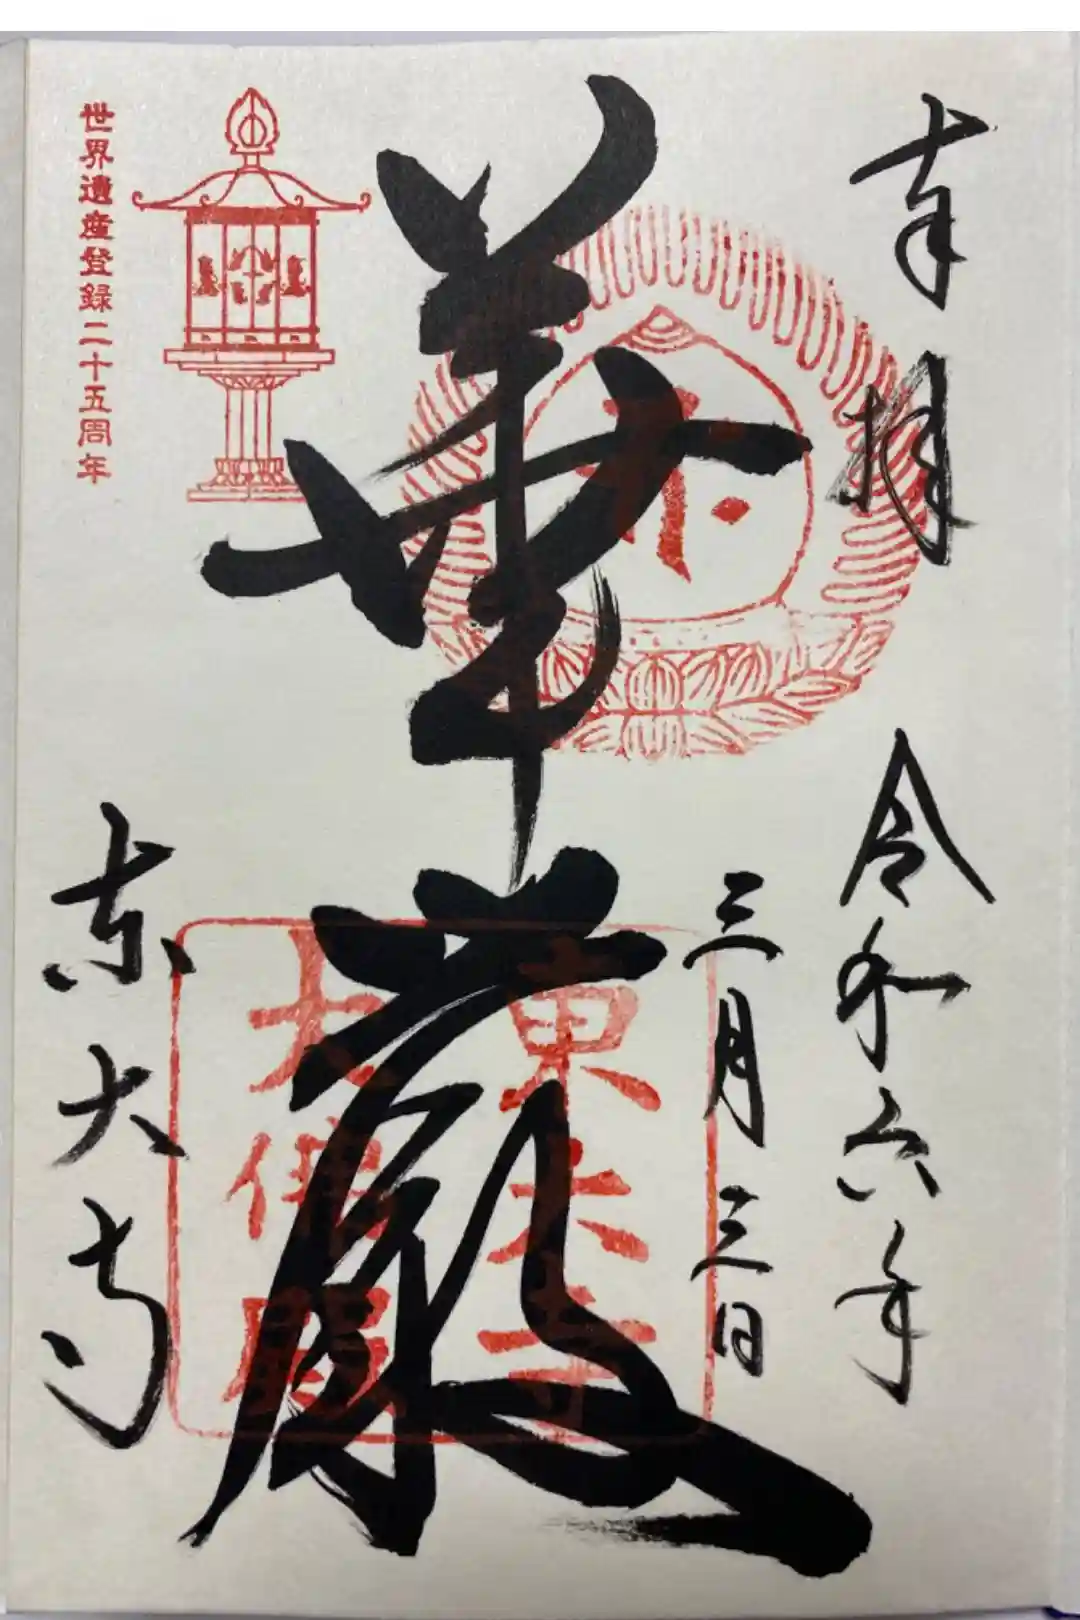 奉拝
令和六年
三月三日
華厳
東大寺
大仏殿
東大寺
世界遺産登録二十五周年